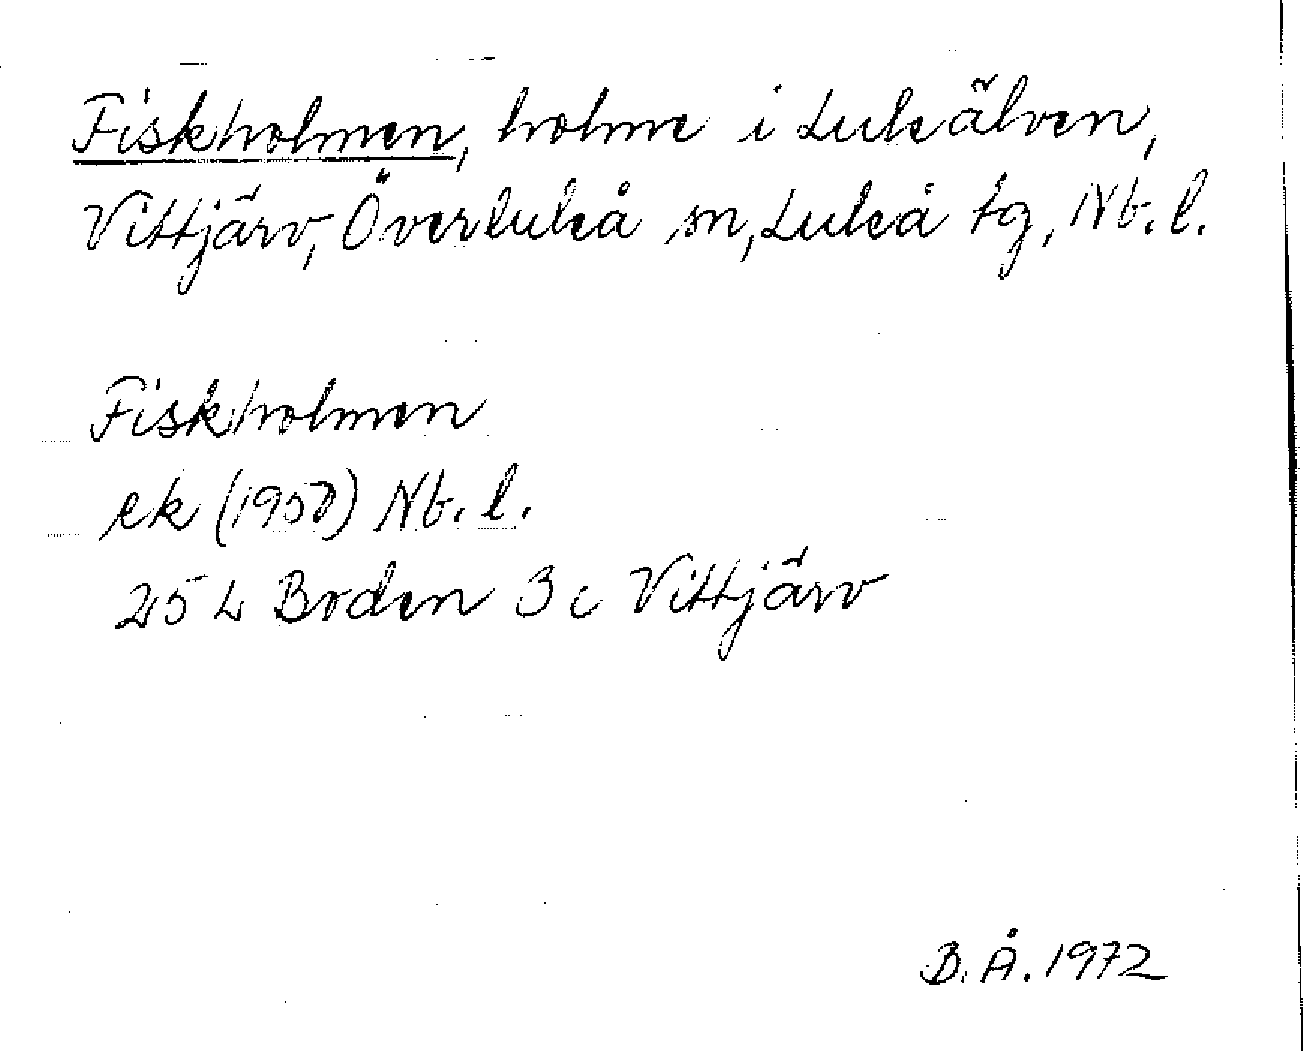 Fiskholmen, holme i Luleälven,
Vittjärv, Överluleå sn, Luleå tg, Nb. l.
Fiskholmen
ek (1950) Nb. l.
25 L Boden 3 c Vittjärv
B. Å. 1972